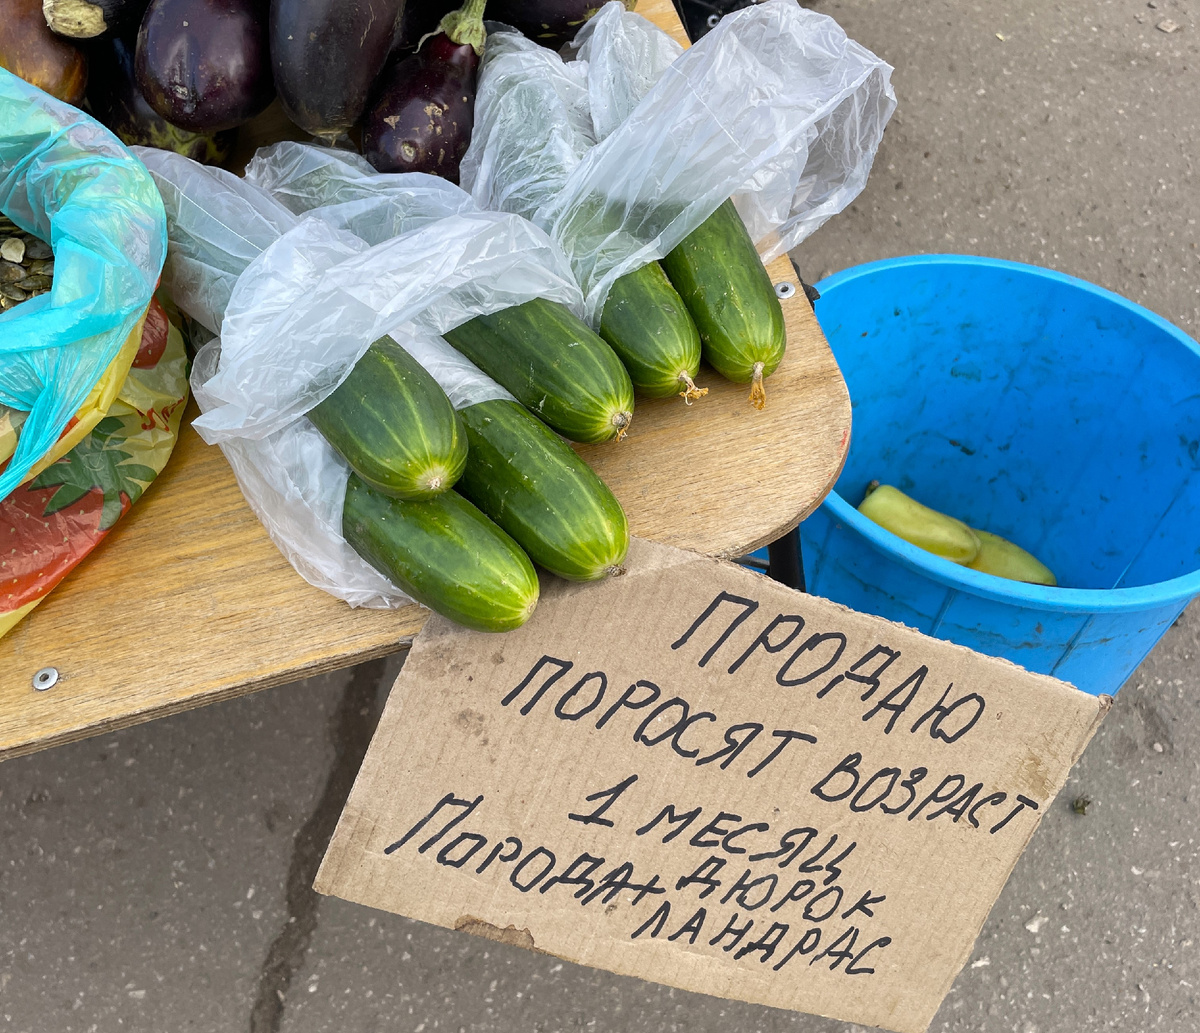 ПРОДАЮ
ПОРОСЯТ ВОЗРАСТ
1 МЕСЯЦ
ПОРОДА+ ДЮРОК
ЛАНДРАС